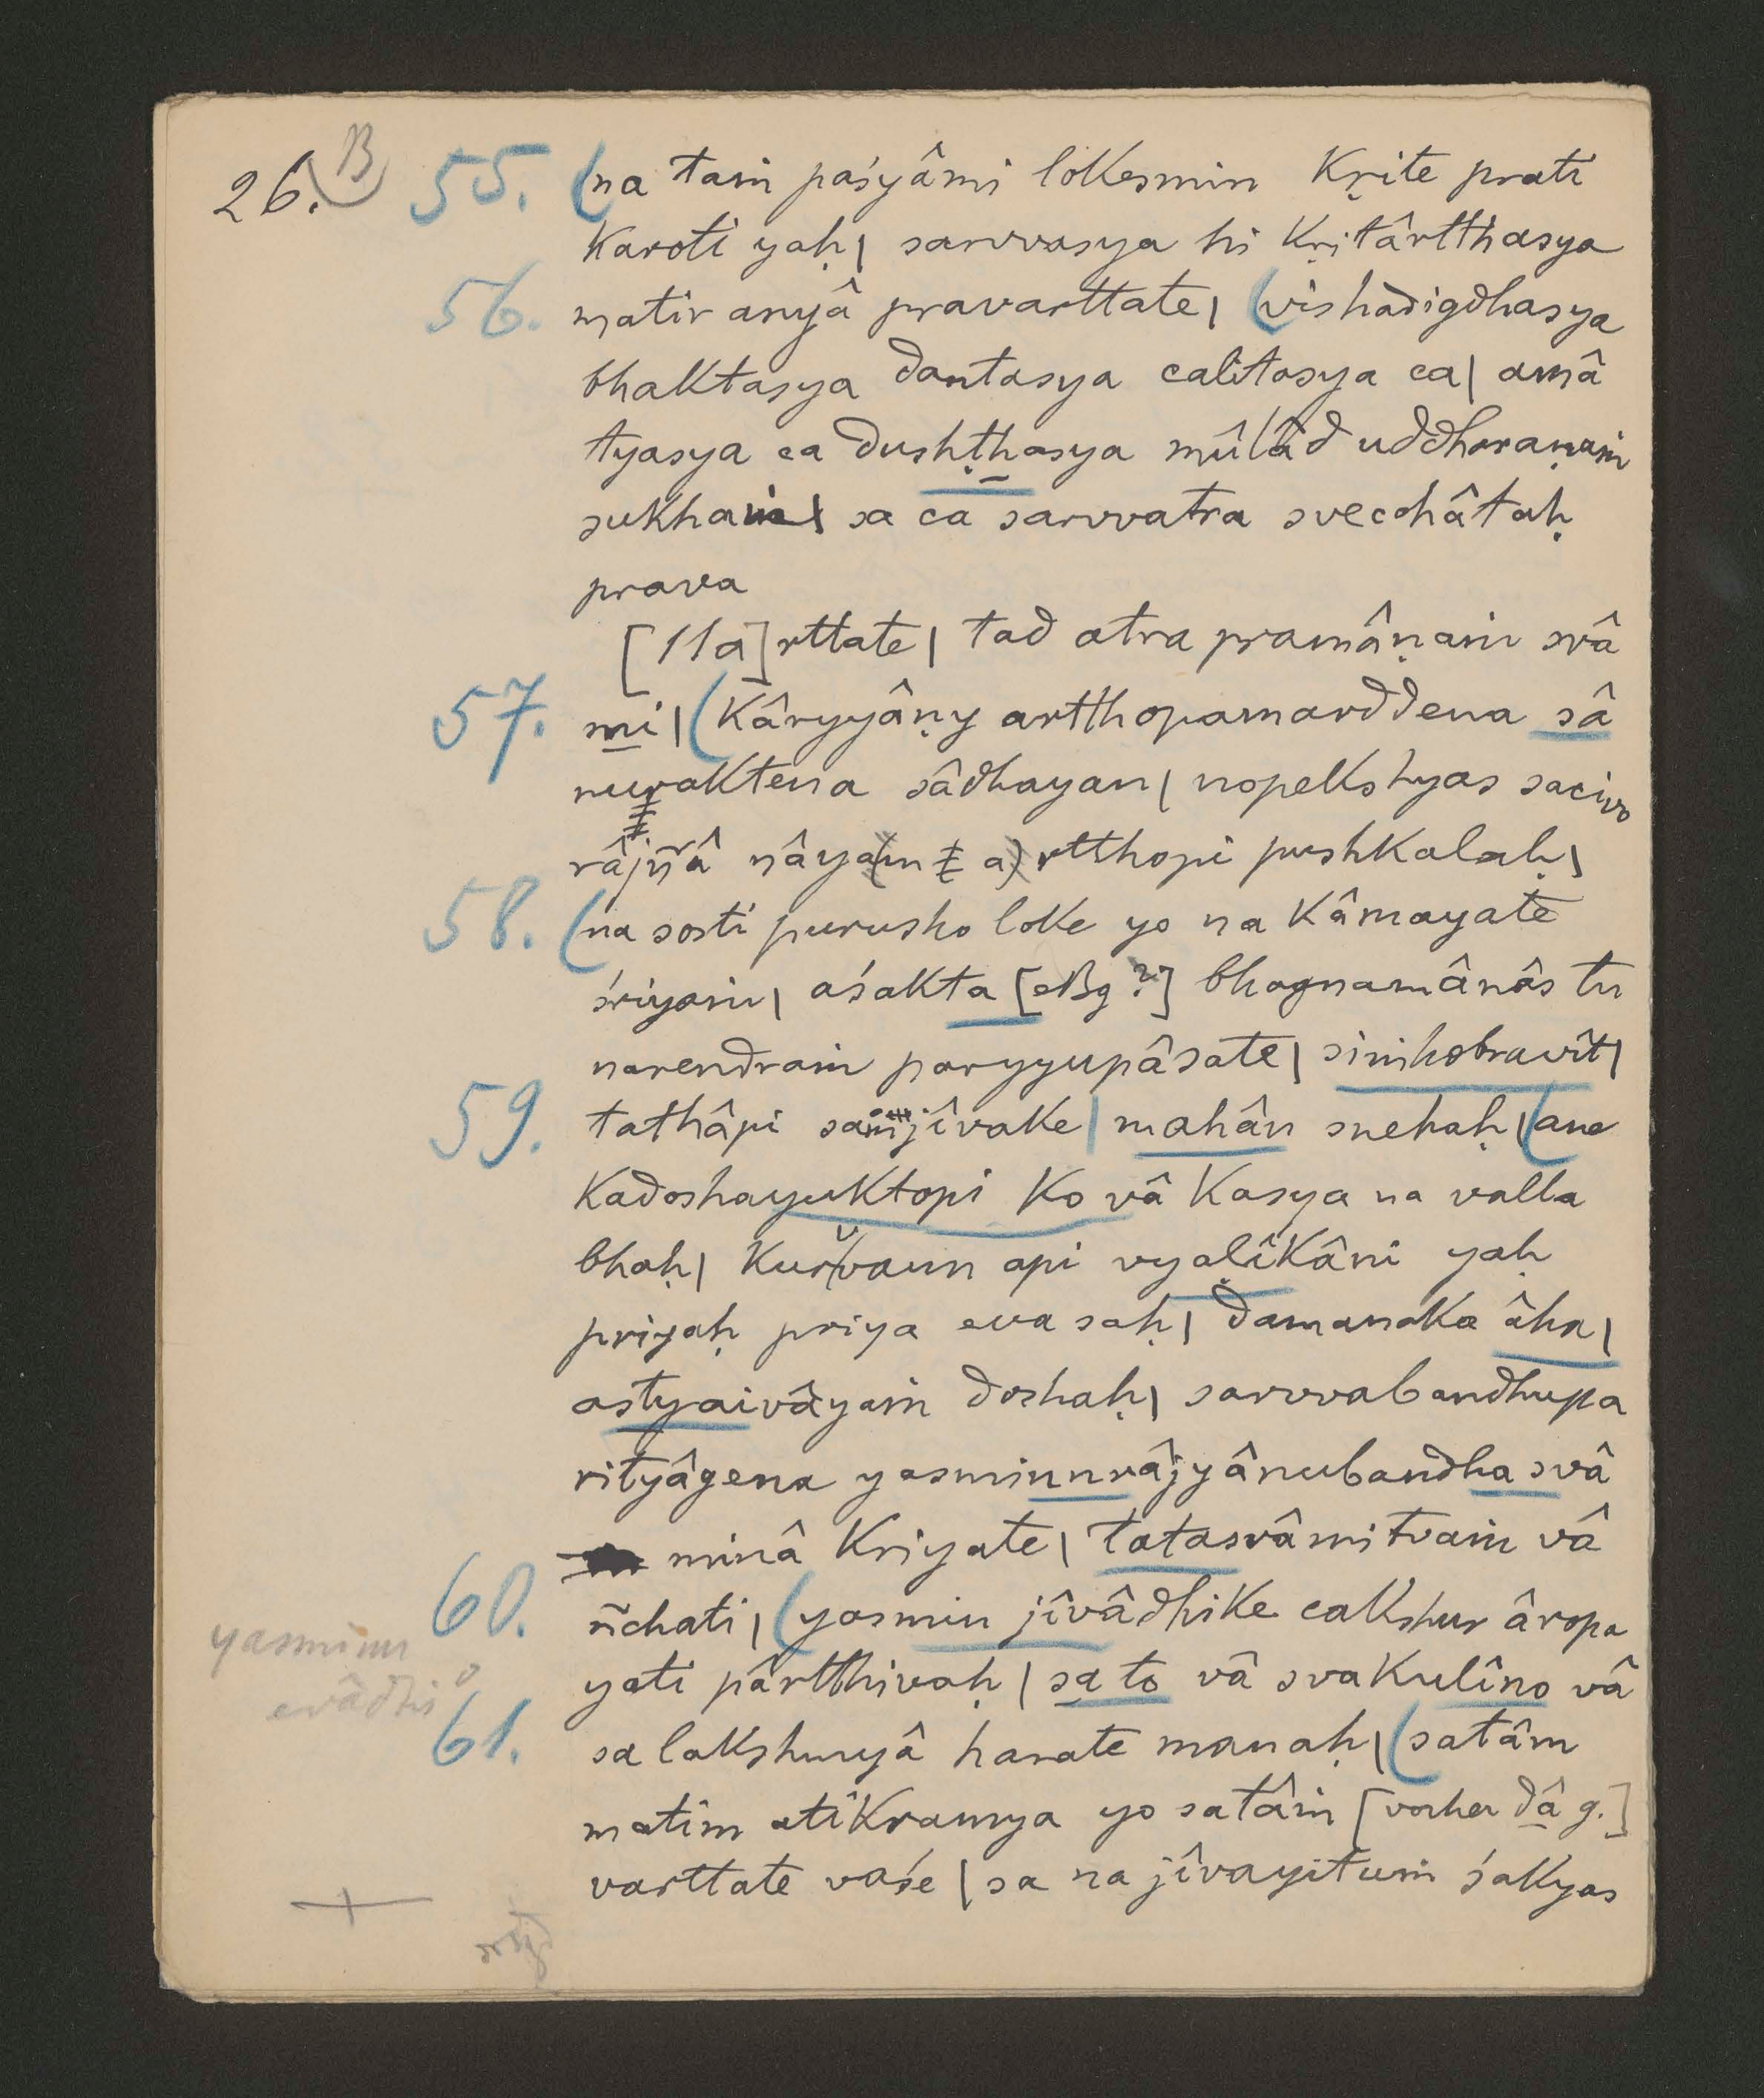 26. B 55. (na taṁ paśyâmi lokesmin kṛite prati
karoti yaḥ| sarvvasya hi kṛitârtthasya
56. matir anyâ pravarttate| (vishadigdhasya
bhaktasya dantasya calitasya ca| amâ
tyasya ca dushṭhasya mûlâd uddharaṇaṁ
sukhaṁ| sa ca sarvvatra svecchâtaḥ
prava
[11a]rttate| tad atra pramâṇaṁ svâ
57. mi| (kâryyâṇy artthopamarddena sâ
nuraktena sâdhayan| nopekshyas sacivo
râjñâ nâya(m t a)rtthopi pushkalaḥ|
58. (na sosti purusho loke yo na kâmayate
śriyaṁ| aśakta [eBg?] bhagnamânâs tu
narendraṁ paryyupâsate| siṁhobravît|
59. tathâpi saṁjîvake| mahân snehaḥ| (ane
kadoshayuktopi ko vâ kasya na valla
bhaḥ| kurvvann api vyaḷîkâni yaḥ
priyaḥ priya eva saḥ| damanaka âha|
astyaivâyaṁ doshaḥ| sarvvabandhupa
rityâgena yasminnrâjyânubandha svâ
minâ kriyate| tatasvâmitvaṁ vâ
60. ñchati| (yasmin jîvâdhike cakshur âropa
yasminn
evâdhi°
yati pârtthivaḥ| sa to vâ svakulîno vâ
61. sa lakshmyâ harate manaḥ| (satâm
matim atikramya yo satâṁ [vorher dâ g.]
varttate vaśe| sa na jîvayituṁ śakyas